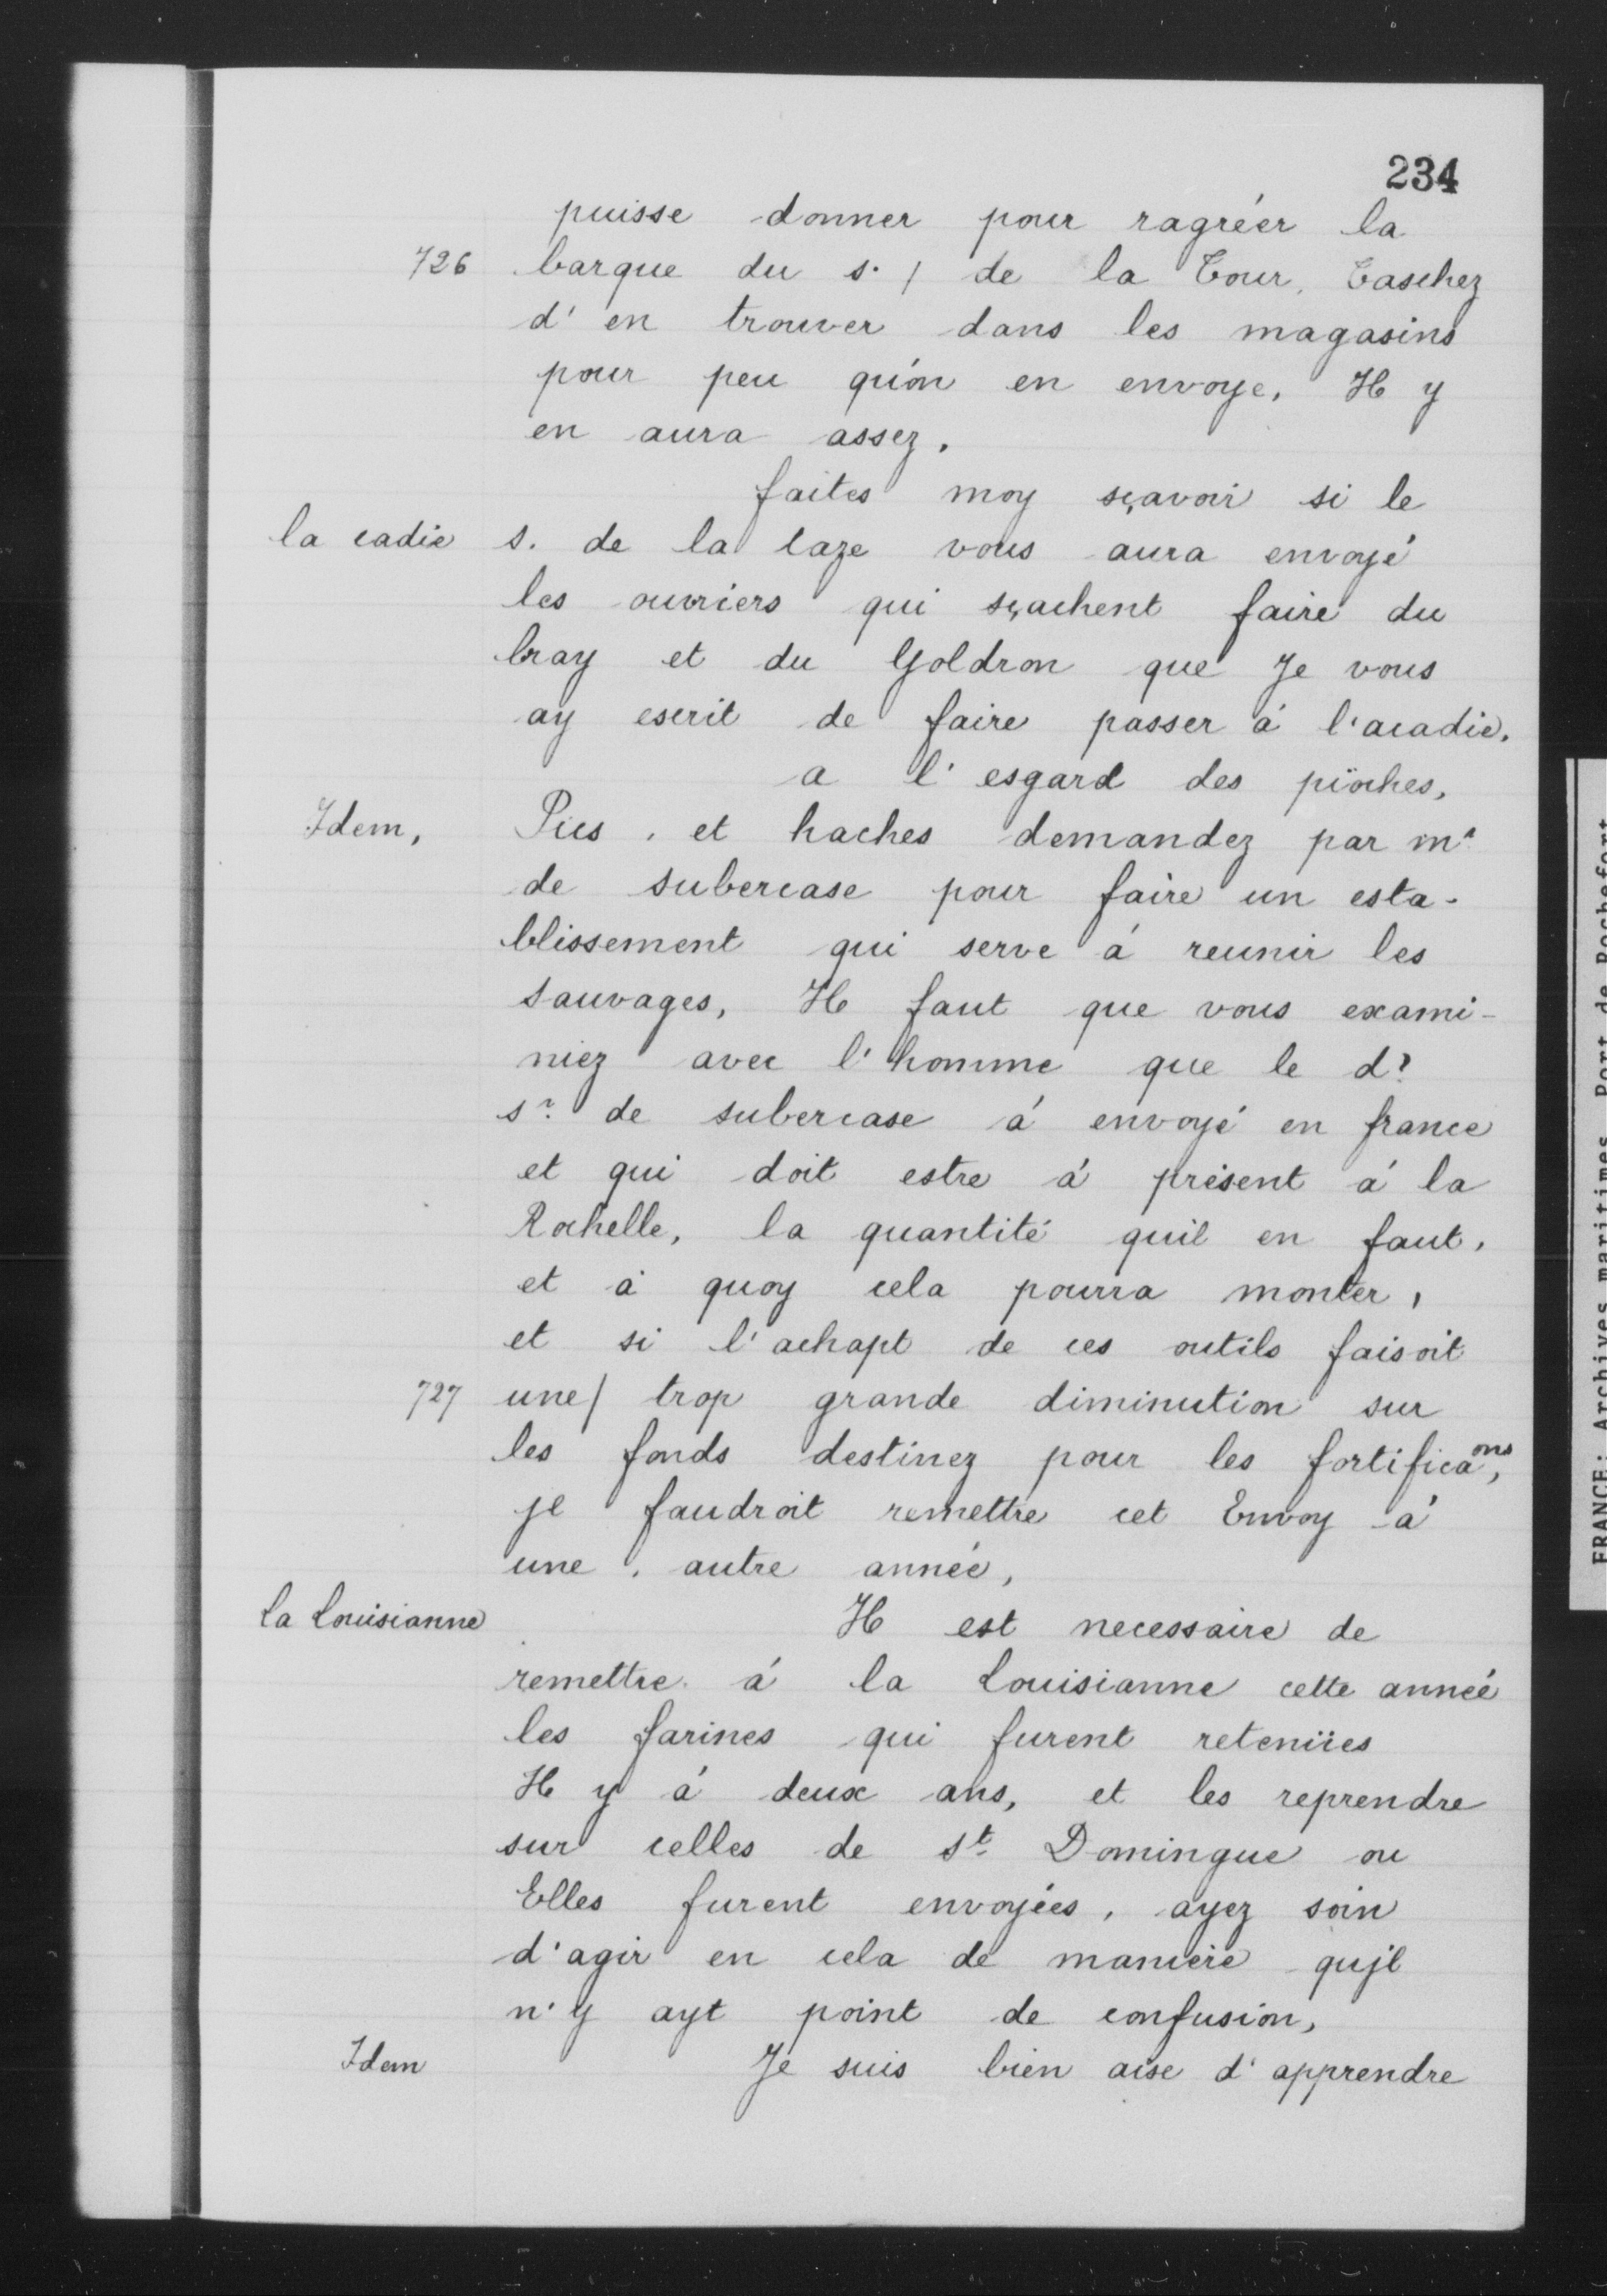 234
puisse donner pour ragréer la
726 barque du s. / de la Tour, Taschez
d'en trouver dans les magasins
pour peu qu'on en envoye, Il y
en aura assez,
faites moy sçavoir si le
la cadie s. de la laze vous aura envoyé
les ouvriers qui sçachent faire du
bray et du Goldron que Je vous
ay escrit de faire passer á l'acadie,
a l'esgard des pïoches,
Idem, Pics, et haches demandez par mr
de subercase pour faire un esta-
blissement qui serve á reunir les
sauvages, Il faut que vous exami-
niez avec l'homme que le d?
sr. de subercase á envoyé en france
et qui doit estre á présent á la
Rochelle, la quantité quil en faut,
et á quoy cela pourra monter,
et si l'achapt de ces outils faisoit
727 une / trop grande diminution sur
les fonds destinez pour les fortificaons,
jl faudroit remettre cet Envoy á
une, autre année,
la Louisianne Il est necessaire de
remettre á la Louisianne cette année
les farines qui furent retenües
Il y á deux ans, et les reprendre
sur celles de st. Domingue ou
Elles furent envoyées, ayez soin
d'agir en cela de maniere qujl
n'y ayt point de confusion,
Idem Je suis bien aise d'apprendre
FRANCE: Archives maritimes Port de Rochefort